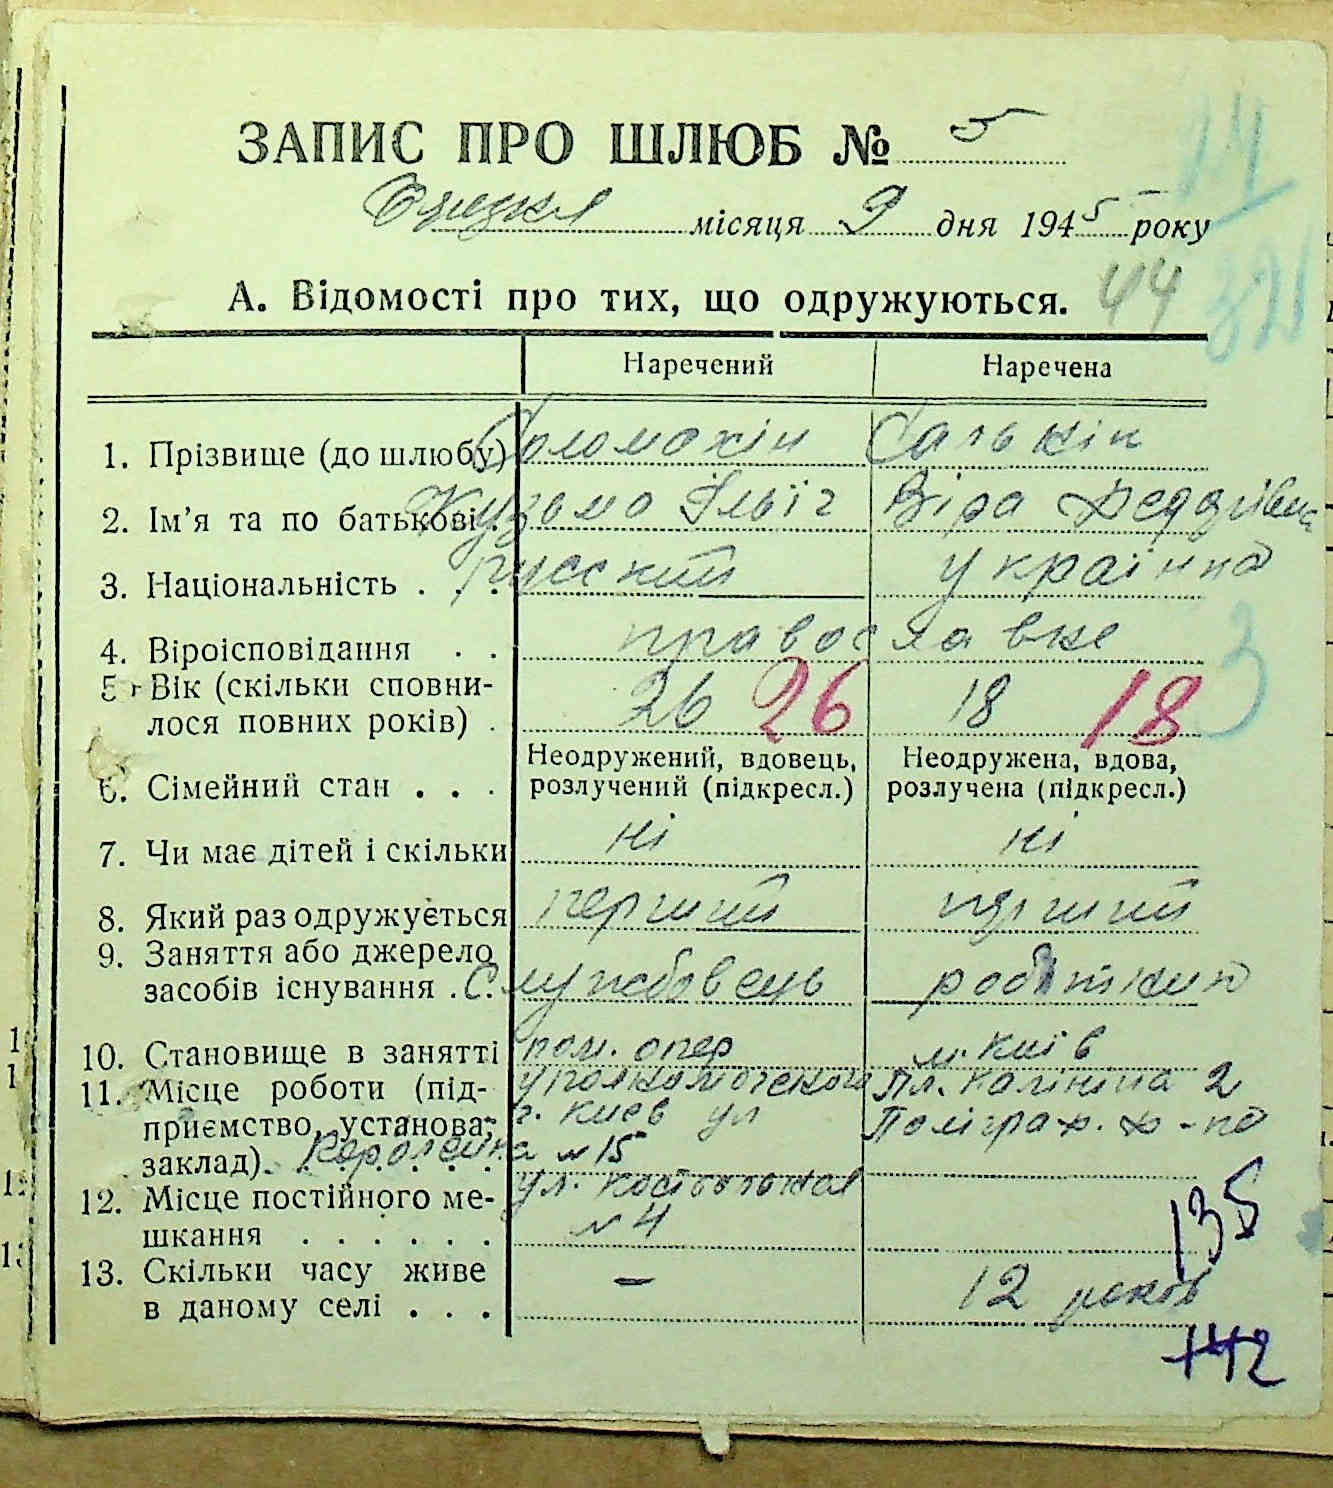 ЗАПИС ПРО ШЛЮБ № 5
місяця 9 дня 1945 року
А. Відомості про тих, що одружуються. 44
Наречений Наречена
1. Прізвище (до шлюбу) Соломохін Салькін
2. Ім'я та по батькові. Кузьмо Ільїч Віра
3. Національність . . . русский українка
4. Віроісповідання . . православне
5. Вік (скільки сповни-
лося повних років) . 26 26 18 18
Неодружений, вдовець, Неодружена, вдова,
6. Сімейний стан . . . розлучений (підкресл.) розлучена (підкресл.)
7. Чи має дітей і скільки ні ні
8. Який раз одружується перший перший
9. Заняття або джерело
засобів існування . Службовець робітниця
10. Становище в занятті пом. опер м. Київ
11. Місце роботи (під- уполномоченого пл. Калініна 2
приємство, установа, г. Киев ул Поліграф. ф-ка
заклад). . . . . . . Короленка № 15
12. Місце постійного ме- ул. Костьольная
шкання . . . . . . № 4 135
13. Скільки часу живе
в даному селі . . . – 12 років
+42